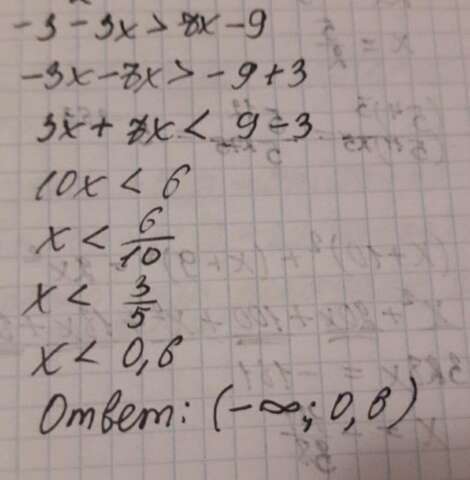 -3-3x>7x-9
-3x-7x>-9+3
3x+7x<9-3
10x<6
x<6/10
x<3/5
x<0,6
Ответ: (-∞; 0,6)